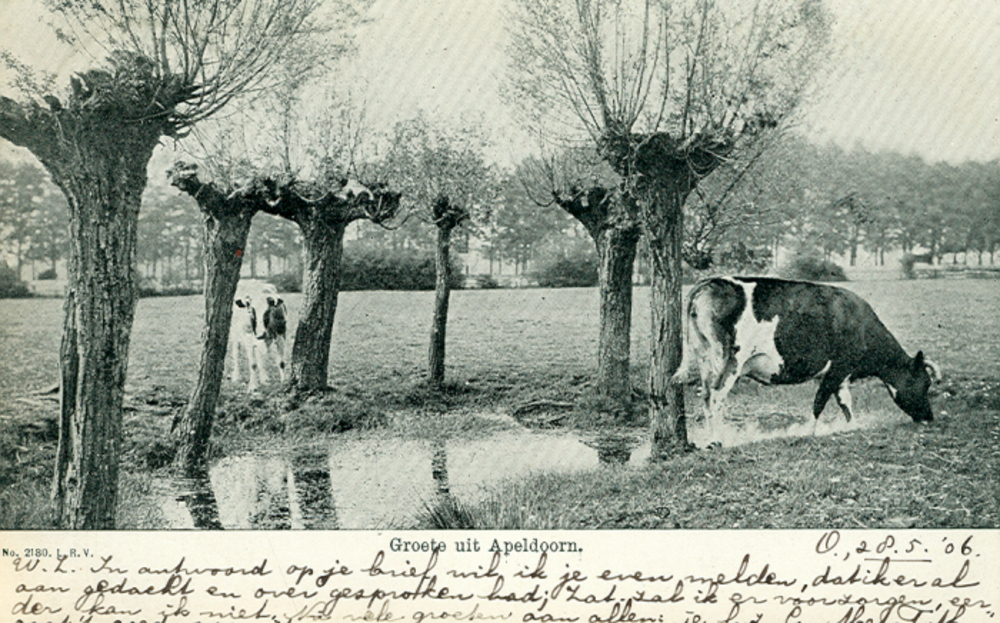 Groete uit Apeldoorn.
No. 2180. L. R. V.
O., 28.5.'06.
W. L. In antwoord op je brief wil ik je even melden, dat ik er al
aan gedacht en over gesproken had; Zat. zal ik er voor zorgen, eer-
der kan ik niet. vele groeten aan allen: